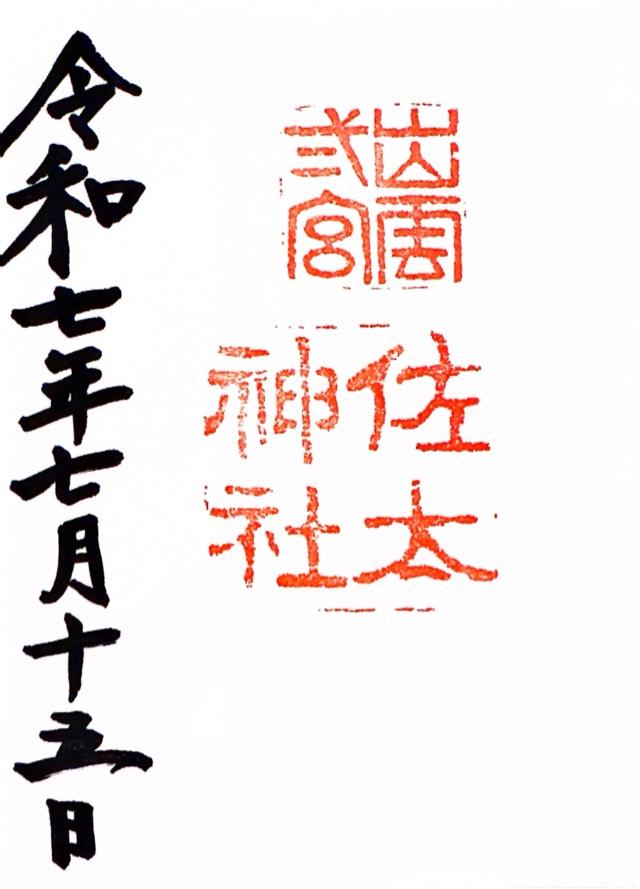 出雲
弍宮
佐太
神社
令和七年七月十五日